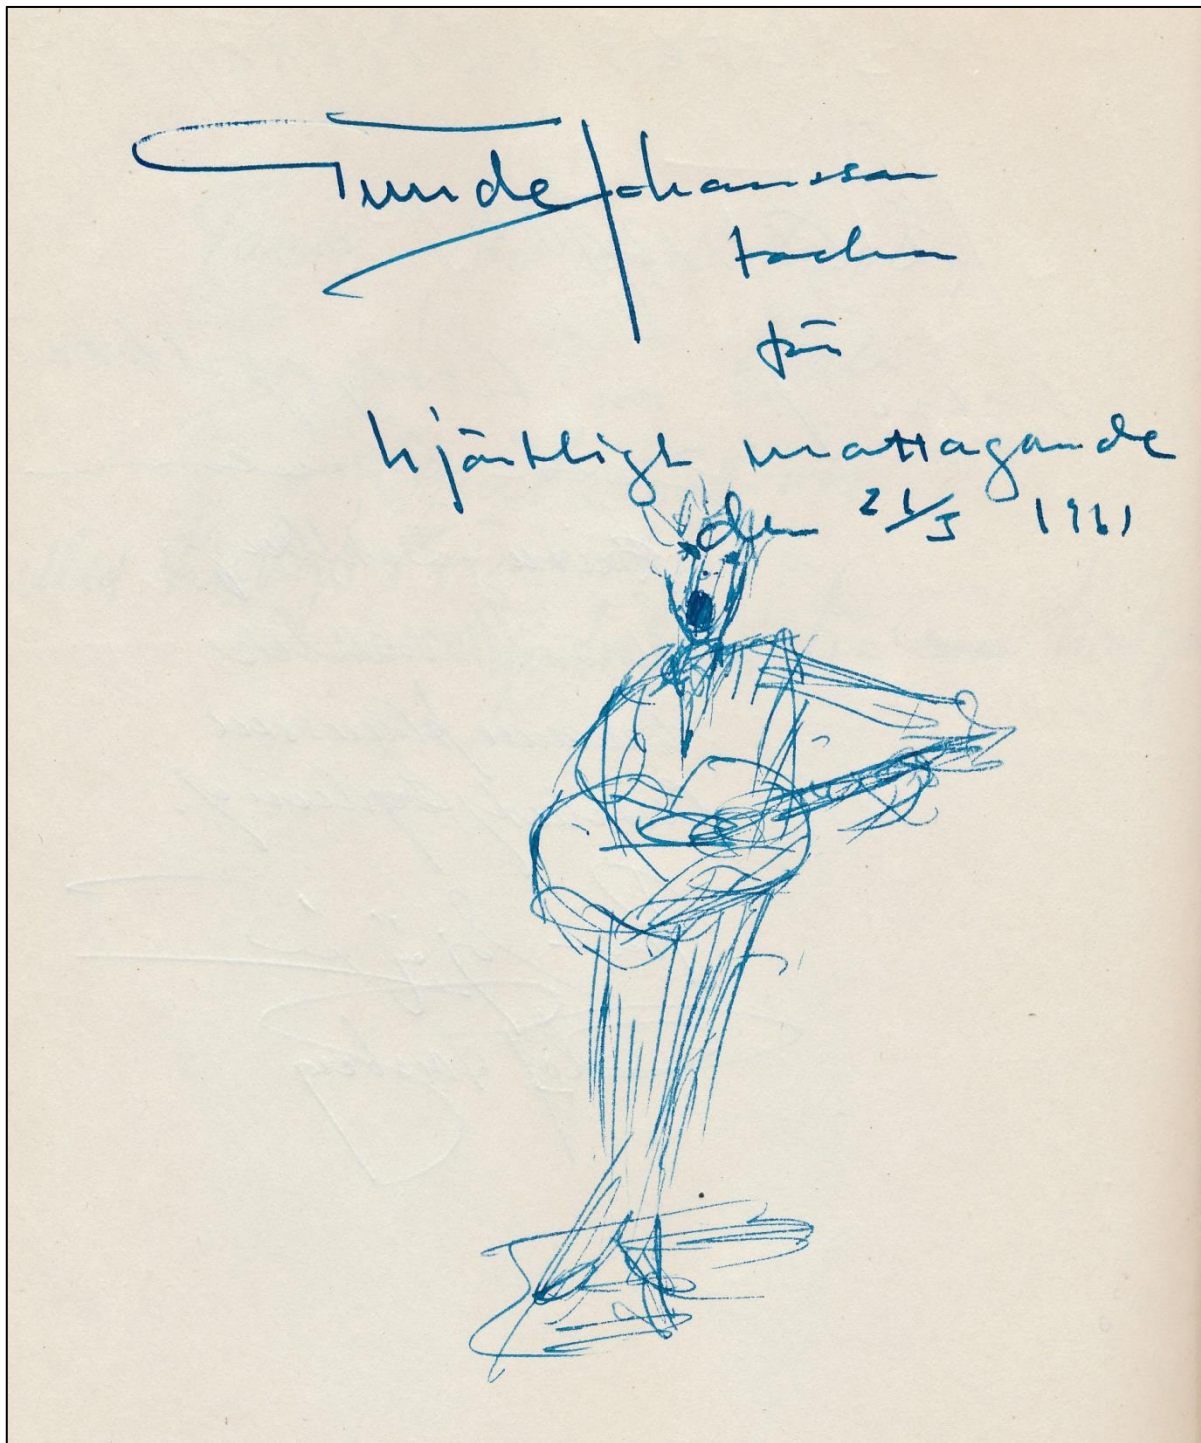 Gunde Johansson
tackar
för
hjärtligt mottagande
den 21/5 1961